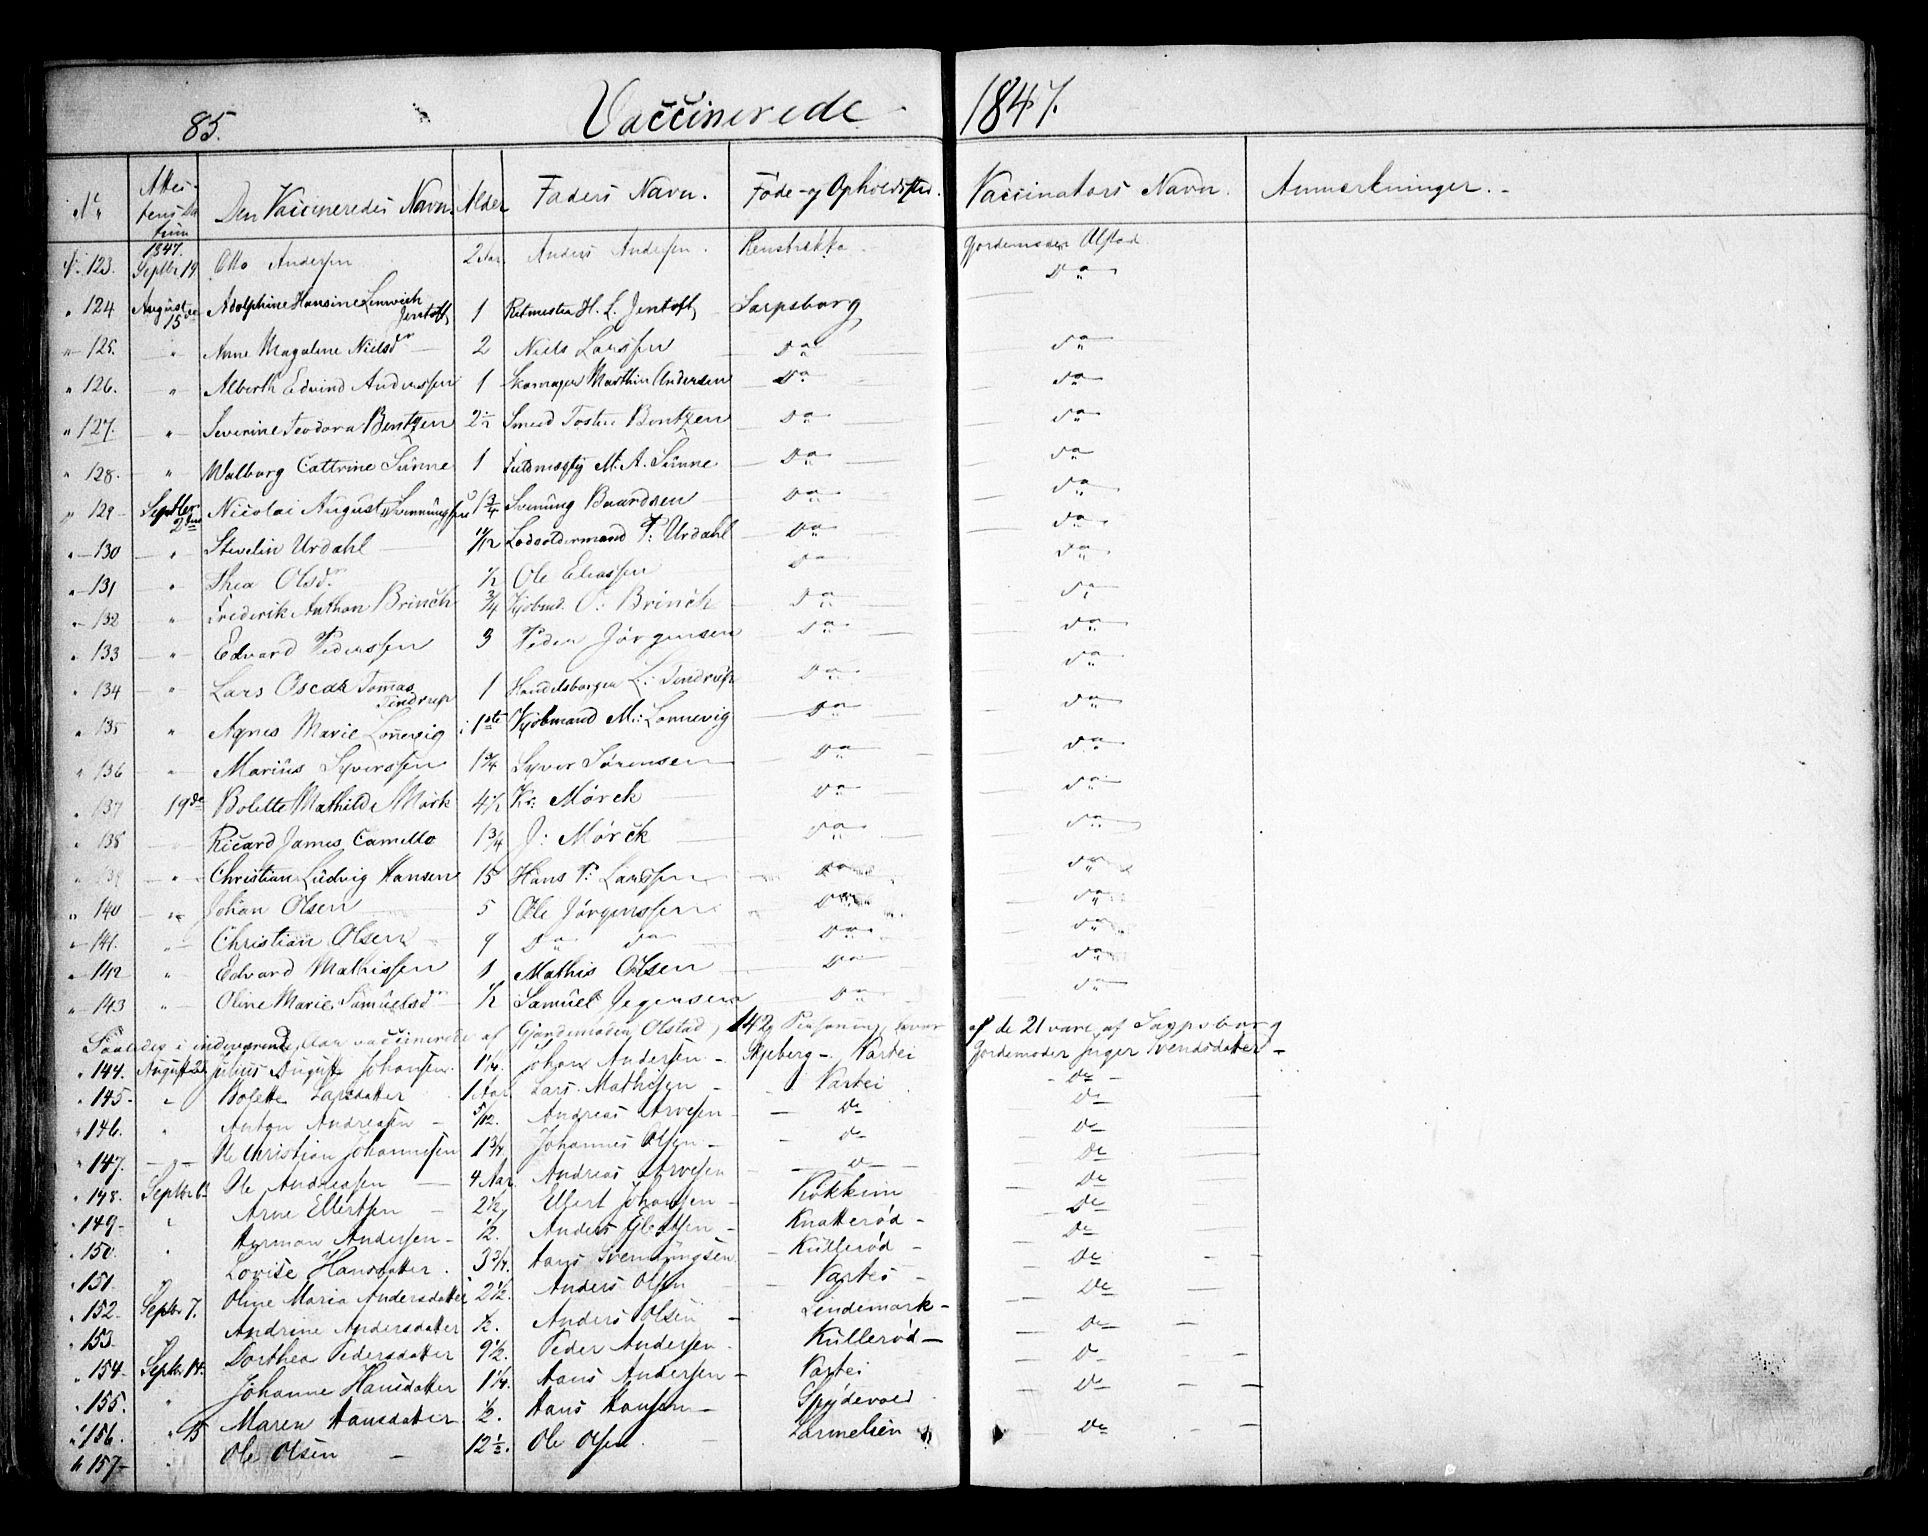 85. Vaccinerede 1847.
No Attestens Datum Den Vaccineredes Navn. Alder Faders Navn. Føde- og Opholdsted. Vaccinators Navn. Anmerkninger.
1847.
123. Septbr 19 Otto Andersen 2 Aar Anders Andersen. Jordemoder Olstad
" 124 August 15de Adolphine Hansine Jentoft 1 Ritmester H. L. Jentoft Sarpsborg Do
" 125. " Anne Magaline Nielsdr 2 Niels Larssen Do Do
" 126. " Alberth Edvind Anderssen 1 Skomager Marthin Andersen Do Do
" 127. " Severine Teodora Bentzen 2½ Smed Tosten Bentzen Do Do
" 128. " Walborg Cattrine Sünne 1 M. A. Sünne Do Do
" 129 Septbr 2den Nicolai August Svennüngsen 1¾ Svenüng Baardsen Do Do
" 130 " Stevelin Urdahl 11/12 P: Urdahl Do Do
" 131 " Thea Olsdr ½ Ole Eliassen Do Do
" 132 " Frederik Anthon Brinch ¾ Kjøbmd. O: Brinch Do Do
" 133 " Edvard Pederssen 3 Peder Jørgensen Do Do
" 134 " Lars Oscar Tomas Dindrup 1 Handelsborger L: Dindrup Do Do
" 135 " Agnes Marie Lonnevig i 1ste Kjøbmand M: Lonnevig Do Do
" 136 " Marius Syverssen 1¾ Syver Sørensen Do Do
" 137 19de Bolette Mathilde Mørk 4½ Kr: Mörck Do Do
" 138 Ricard James Camello 1¾ J: Mörck Do Do
" 139 " Christian Ludvig Hansen 15 Hans P: Larssen Do Do
" 140 " Johan Olsen 5 Ole Jørgenssen Do Do
" 141. " Christian Olsen 9 Do Do Do Do
" 142 " Edvard Mathissen 1 Mathis Olsen Do Do
" 143 " Oline Marie Samuelsdr ½ Samuel Jegersen Do Do
Saaledes i indeværende Aar vaccinerede af Gjordemoder Olstad, 142 Personer, hvor af de 21 vare af Sarpsborg
" 144. August Julius August Johansen. 1¼ Johan Andersen Skjeberg - Vartei Jordemoder Inger Svendsdatter
" 145. " Bolette Larsdatter 1 Aar Lars Mathisen Vartei De
" 146. " Anton Andreasen 5/12. Andreas Arvesen De De
" 147. " Ole Christian Johannesen 1¾ Johannes Olsen De De
" 148. Septbr 6 Ole Andreasen 4 Aar Andreas Arvesen De De
" 149. " Arne Ellertsen 2½ Ellert Johansen Kokkim De
" 150. " Herman Andersen ½. Anders Knatterød De
" 151. Lovise Hansdatter. 3¾. Hans Svennüngsen Küllerød De
" 152. Septbr 7. Oline Maria Andersdatter 2½. Anders Olsen Vartei De
" 153. Andrine Andersdatter ½. Anders Olsen Lindemark De
" 154. Septbr 14. Dorthea Pedersdatter 9½. Peder Andersen. Küllerød De
" 155. " Johanne Hansdatter 1¼. Hans Andersen Vartei De
" 156. " 15 Maren Hansdatter ½. Hans Hansen Spydevold De
" 157. " Ole Olsen 12½. Ole Olsen De